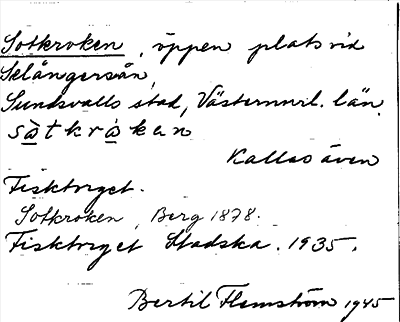 Sotkroken, öppen plats vid
Selångersån,
Sundsvalls stad, Västernorrl. län.
sòtkròkan
Kallas även
Fisktorget.
Sotkroken, Berg 1878.
Fisktorget Stadska. 1935.
Bertil Flemström 1945